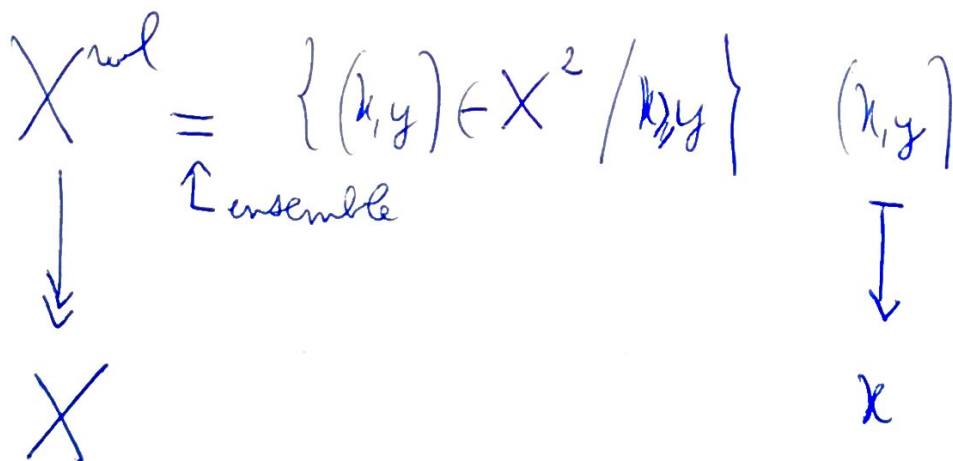 X^{rel} = {(x,y) ∈ X² / x ≥ y} (x,y)
↑ ensemble
X x